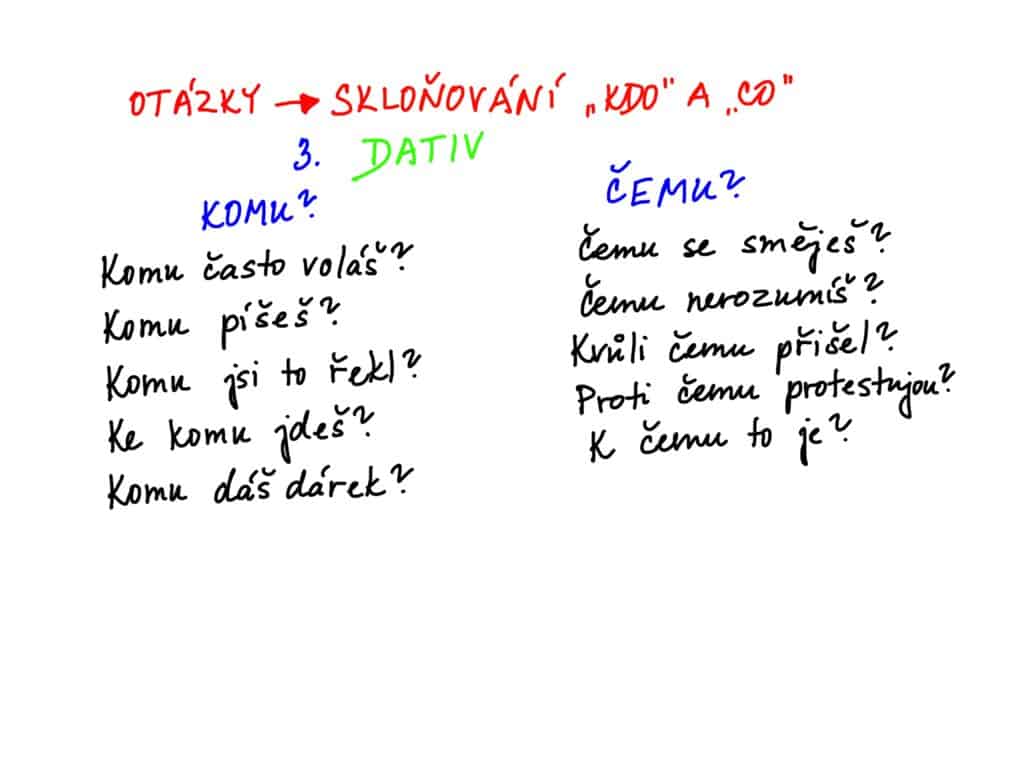 OTÁZKY → SKLOŇOVÁNÍ „KDO" A „CO"
3. DATIV
KOMU?
Komu často voláš?
Komu píšeš?
Komu jsi to řekl?
Ke komu jdeš?
Komu dáš dárek?
ČEMU?
Čemu se směješ?
Čemu nerozumíš?
Kvůli čemu přišel?
Proti čemu protestujou?
K čemu to je?